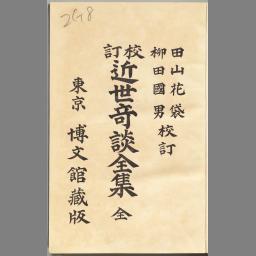 268
田山花袋
柳田國男 校訂
校訂 近世奇談全集 全
東京 博文館藏版